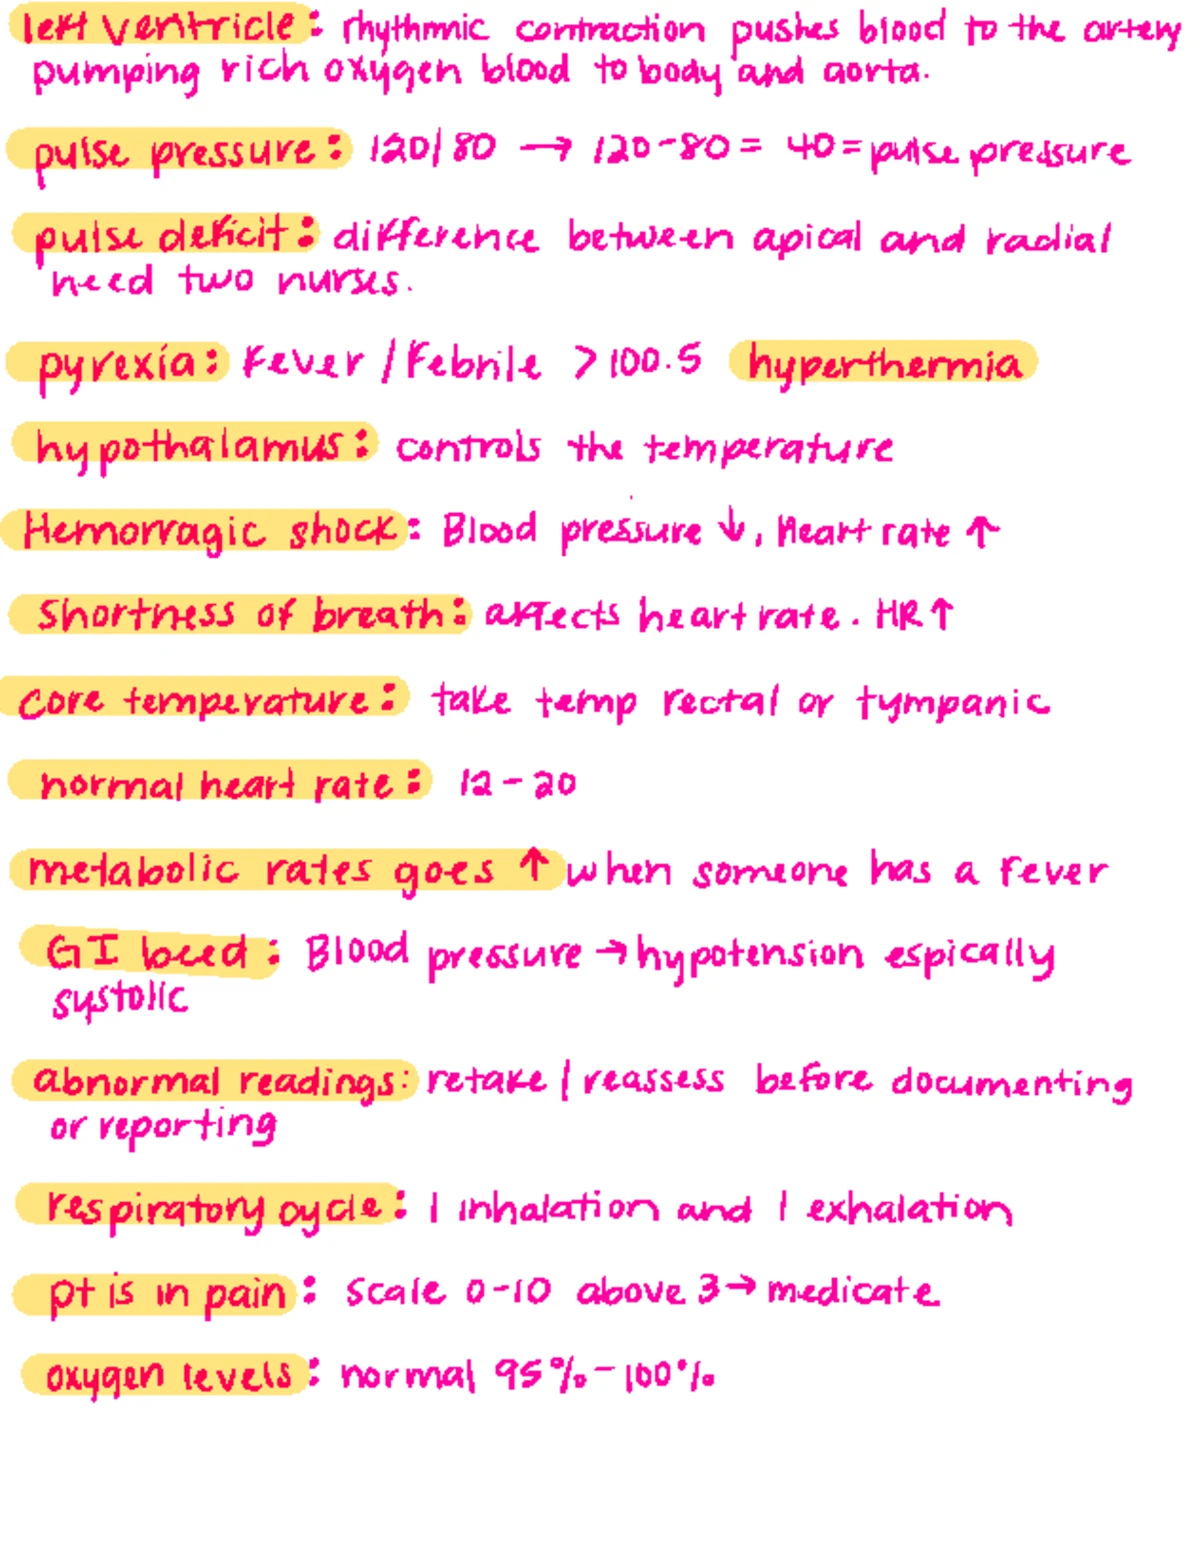 left ventricle: rhythmic contraction pushes blood to the artery
pumping rich oxygen blood to body and aorta.
pulse pressure: 120/80 → 120-80= 40=pulse pressure
pulse deficit: difference between apical and radial
need two nurses.
pyrexia: Fever / Febrile >100.5 hyperthermia
hypothalamus: controls the temperature
Hemorragic shock: Blood pressure ↓, Heart rate ↑
Shortness of breath: affects heart rate. HR↑
core temperature: take temp rectal or tympanic
normal heart rate: 12-20
metabolic rates goes ↑ when someone has a fever
GI beed: Blood pressure → hypotension espically
systolic
abnormal readings: retake / reassess before documenting
or reporting
respiratory cycle: 1 inhalation and 1 exhalation
pt is in pain: scale 0-10 above 3→ medicate
oxygen levels: normal 95%-100%